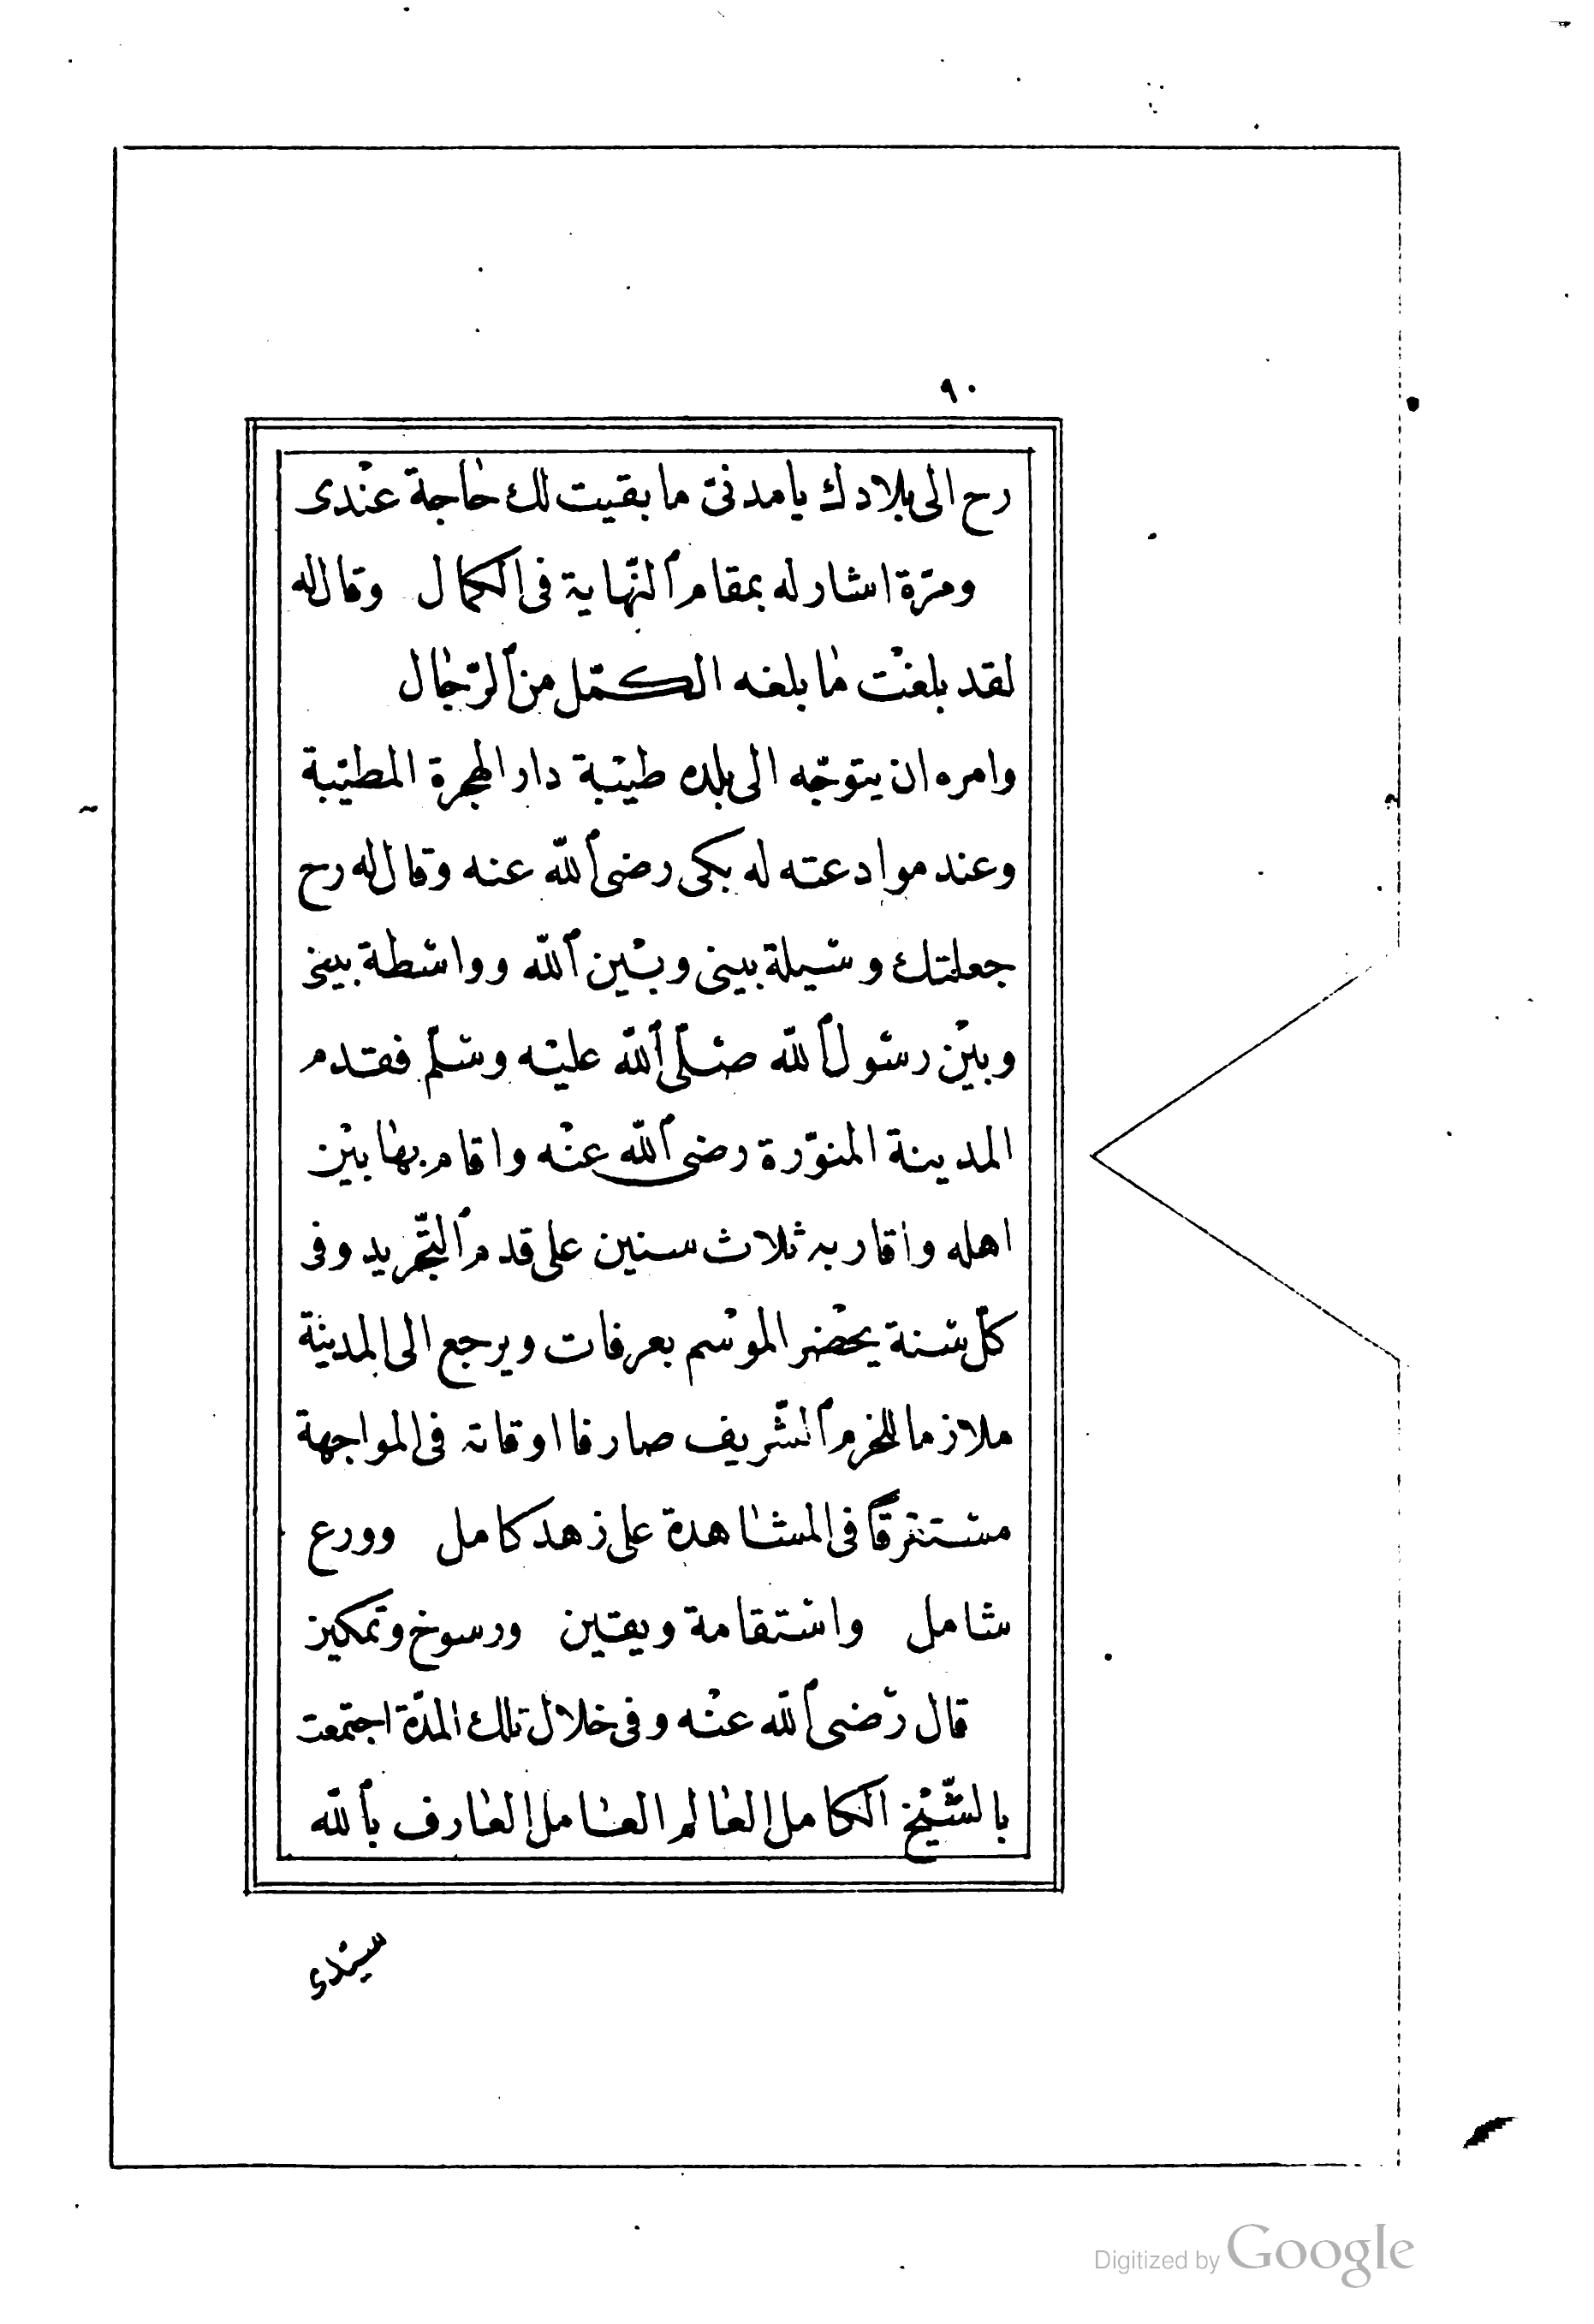 ٩٠
رح الى بلادك يا مدنىّ ما بقيت لك حاجة عندى
ومرّة اشار له بمقام النّهاية فى الكمال وقال له
لقد بلغت ما بلغه الكمّل من الرّجال
وامره ان يتوجّه الى بلده طيبة دار الهجرة المطيّبة
وعند موادعته له بكى رضى الله عنه وقال له رح
جعلتك وسيلة بينى وبين الله وواسطة بينى
وبين رسول الله صلّى الله عليه وسلّم فقدم
المدينة المنوّرة رضى الله عنه واقام بها بين
اهله واقاربه ثلاث سنين على قدم التّجريد وفى
كلّ سنة يحضر الموسم بعرفات ويرجع الى المدينة
ملازما للحرم الشّريف صارفا اوقاته فى المواجهة
مستغرقًا فى المشاهدة على زهد كامل وورع
شامل واستقامة ويقين ورسوخ وتمكين
قال رضى الله عنه وفى خلال تلك المدّة اجتمعت
بالشّيخ الكامل العالم العامل العارف بالله
سيّدى
Digitized by Google